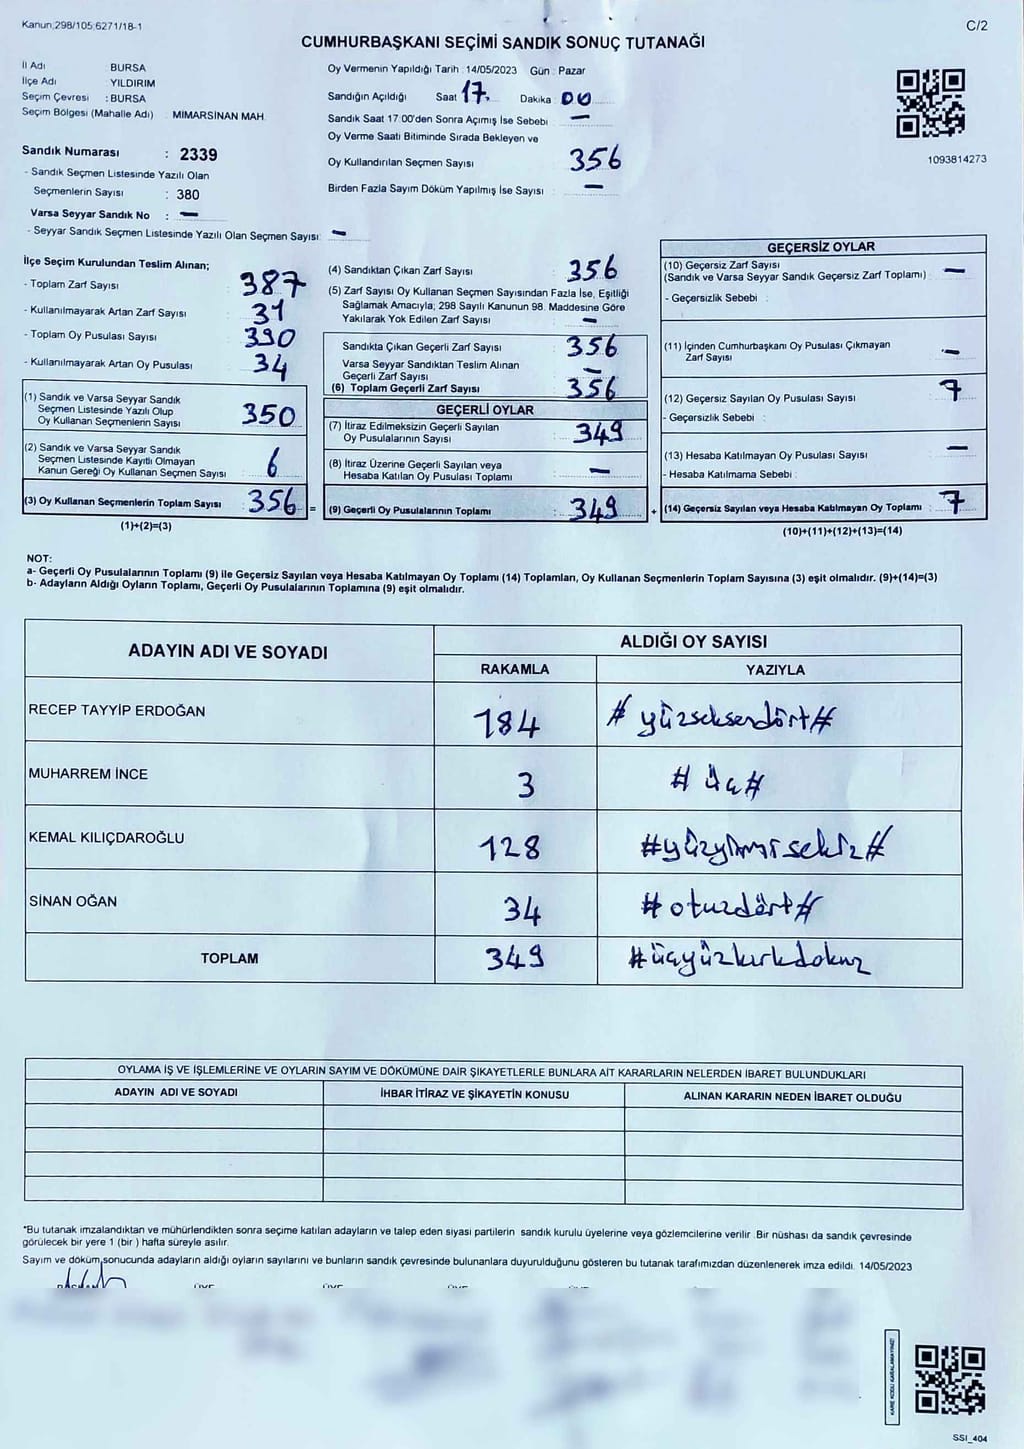 Kanun;298/105;6271/18-1
C/2
CUMHURBAŞKANI SEÇİMİ SANDIK SONUÇ TUTANAĞI
İl Adı : BURSA
İlçe Adı : YILDIRIM
Seçim Çevresi : BURSA
Seçim Bölgesi (Mahalle Adı) : MİMARSİNAN MAH.
Sandık Numarası : 2339
- Sandık Seçmen Listesinde Yazılı Olan
Seçmenlerin Sayısı : 380
Varsa Seyyar Sandık No : —
- Seyyar Sandık Seçmen Listesinde Yazılı Olan Seçmen Sayısı: —
Oy Vermenin Yapıldığı Tarih : 14/05/2023 Gün : Pazar
Sandığın Açıldığı Saat 17 Dakika : 00
Sandık Saat 17:00'den Sonra Açımış İse Sebebi : —
Oy Verme Saati Bitiminde Sırada Bekleyen ve
Oy Kullandırılan Seçmen Sayısı : 356
Birden Fazla Sayım Döküm Yapılmış İse Sayısı : —
1093814273
İlçe Seçim Kurulundan Teslim Alınan;
- Toplam Zarf Sayısı : 387
- Kullanılmayarak Artan Zarf Sayısı : 31
- Toplam Oy Pusulası Sayısı : 390
- Kullanılmayarak Artan Oy Pusulası : 34
(1) Sandık ve Varsa Seyyar Sandık
Seçmen Listesinde Yazılı Olup
Oy Kullanan Seçmenlerin Sayısı : 350
(2) Sandık ve Varsa Seyyar Sandık
Seçmen Listesinde Kayıtlı Olmayan
Kanun Gereği Oy Kullanan Seçmen Sayısı : 6
(3) Oy Kullanan Seçmenlerin Toplam Sayısı : 356 =
(1)+(2)=(3)
(4) Sandıktan Çıkan Zarf Sayısı : 356
(5) Zarf Sayısı Oy Kullanan Seçmen Sayısından Fazla İse, Eşitliği
Sağlamak Amacıyla; 298 Sayılı Kanunun 98. Maddesine Göre
Yakılarak Yok Edilen Zarf Sayısı : —
Sandıkta Çıkan Geçerli Zarf Sayısı : 356
Varsa Seyyar Sandıktan Teslim Alınan
Geçerli Zarf Sayısı : —
(6) Toplam Geçerli Zarf Sayısı : 356
GEÇERLİ OYLAR
(7) İtiraz Edilmeksizin Geçerli Sayılan
Oy Pusulalarının Sayısı : 349
(8) İtiraz Üzerine Geçerli Sayılan veya
Hesaba Katılan Oy Pusulası Toplamı : —
(9) Geçerli Oy Pusulalarının Toplamı : 349 +
GEÇERSİZ OYLAR
(10) Geçersiz Zarf Sayısı
(Sandık ve Varsa Seyyar Sandık Geçersiz Zarf Toplamı) : —
- Geçersizlik Sebebi :
(11) İçinden Cumhurbaşkanı Oy Pusulası Çıkmayan
Zarf Sayısı : —
(12) Geçersiz Sayılan Oy Pusulası Sayısı : 7
- Geçersizlik Sebebi :
(13) Hesaba Katılmayan Oy Pusulası Sayısı : —
- Hesaba Katılmama Sebebi :
(14) Geçersiz Sayılan veya Hesaba Katılmayan Oy Toplamı : 7
(10)+(11)+(12)+(13)=(14)
NOT:
a- Geçerli Oy Pusulalarının Toplamı (9) ile Geçersiz Sayılan veya Hesaba Katılmayan Oy Toplamı (14) Toplamları, Oy Kullanan Seçmenlerin Toplam Sayısına (3) eşit olmalıdır. (9)+(14)=(3)
b- Adayların Aldığı Oyların Toplamı, Geçerli Oy Pusulalarının Toplamına (9) eşit olmalıdır.
ADAYIN ADI VE SOYADI
ALDIĞI OY SAYISI
RAKAMLA YAZIYLA
RECEP TAYYİP ERDOĞAN 184 # yüzseksendört #
MUHARREM İNCE 3 # üç #
KEMAL KILIÇDAROĞLU 128 # yüzyirmisekiz #
SİNAN OĞAN 34 # otuzdört #
TOPLAM 349 # üçyüzkırkdokuz
OYLAMA İŞ VE İŞLEMLERİNE VE OYLARIN SAYIM VE DÖKÜMÜNE DAİR ŞİKAYETLERLE BUNLARA AİT KARARLARIN NELERDEN İBARET BULUNDUKLARI
ADAYIN ADI VE SOYADI İHBAR İTİRAZ VE ŞİKAYETİN KONUSU ALINAN KARARIN NEDEN İBARET OLDUĞU
*Bu tutanak imzalandıktan ve mühürlendikten sonra seçime katılan adayların ve talep eden siyasi partilerin sandık kurulu üyelerine veya gözlemcilerine verilir. Bir nüshası da sandık çevresinde
görülecek bir yere 1 (bir ) hafta süreyle asılır.
Sayım ve döküm sonucunda adayların aldığı oyların sayılarını ve bunların sandık çevresinde bulunanlara duyurulduğunu gösteren bu tutanak tarafımızdan düzenlenerek imza edildi. 14/05/2023
KARE KODU KARALAMAYINIZ!
SSİ_404